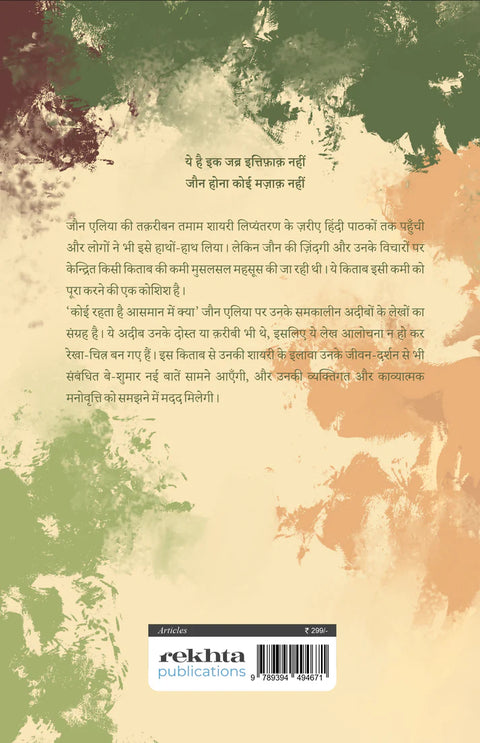 ये है इक जब्र इत्तिफ़ाक़ नहीं
जौन होना कोई मज़ाक़ नहीं
जौन एलिया की तक़रीबन तमाम शायरी लिप्यंतरण के ज़रीए हिंदी पाठकों तक पहुँची
और लोगों ने भी इसे हाथों-हाथ लिया। लेकिन जौन की ज़िंदगी और उनके विचारों पर
केन्द्रित किसी किताब की कमी मुसलसल महसूस की जा रही थी। ये किताब इसी कमी को
पूरा करने की एक कोशिश है।
'कोई रहता है आसमान में क्या' जौन एलिया पर उनके समकालीन अदीबों के लेखों का
संग्रह है। ये अदीब उनके दोस्त या क़रीबी भी थे, इसलिए ये लेख आलोचना न हो कर
रेखा-चित्र बन गए हैं। इस किताब से उनकी शायरी के इलावा उनके जीवन-दर्शन से भी
संबंधित बे-शुमार नई बातें सामने आएँगी, और उनकी व्यक्तिगत और काव्यात्मक
मनोवृत्ति को समझने में मदद मिलेगी।
Articles ₹ 299/-
rekhta
publications
9 789394 494671